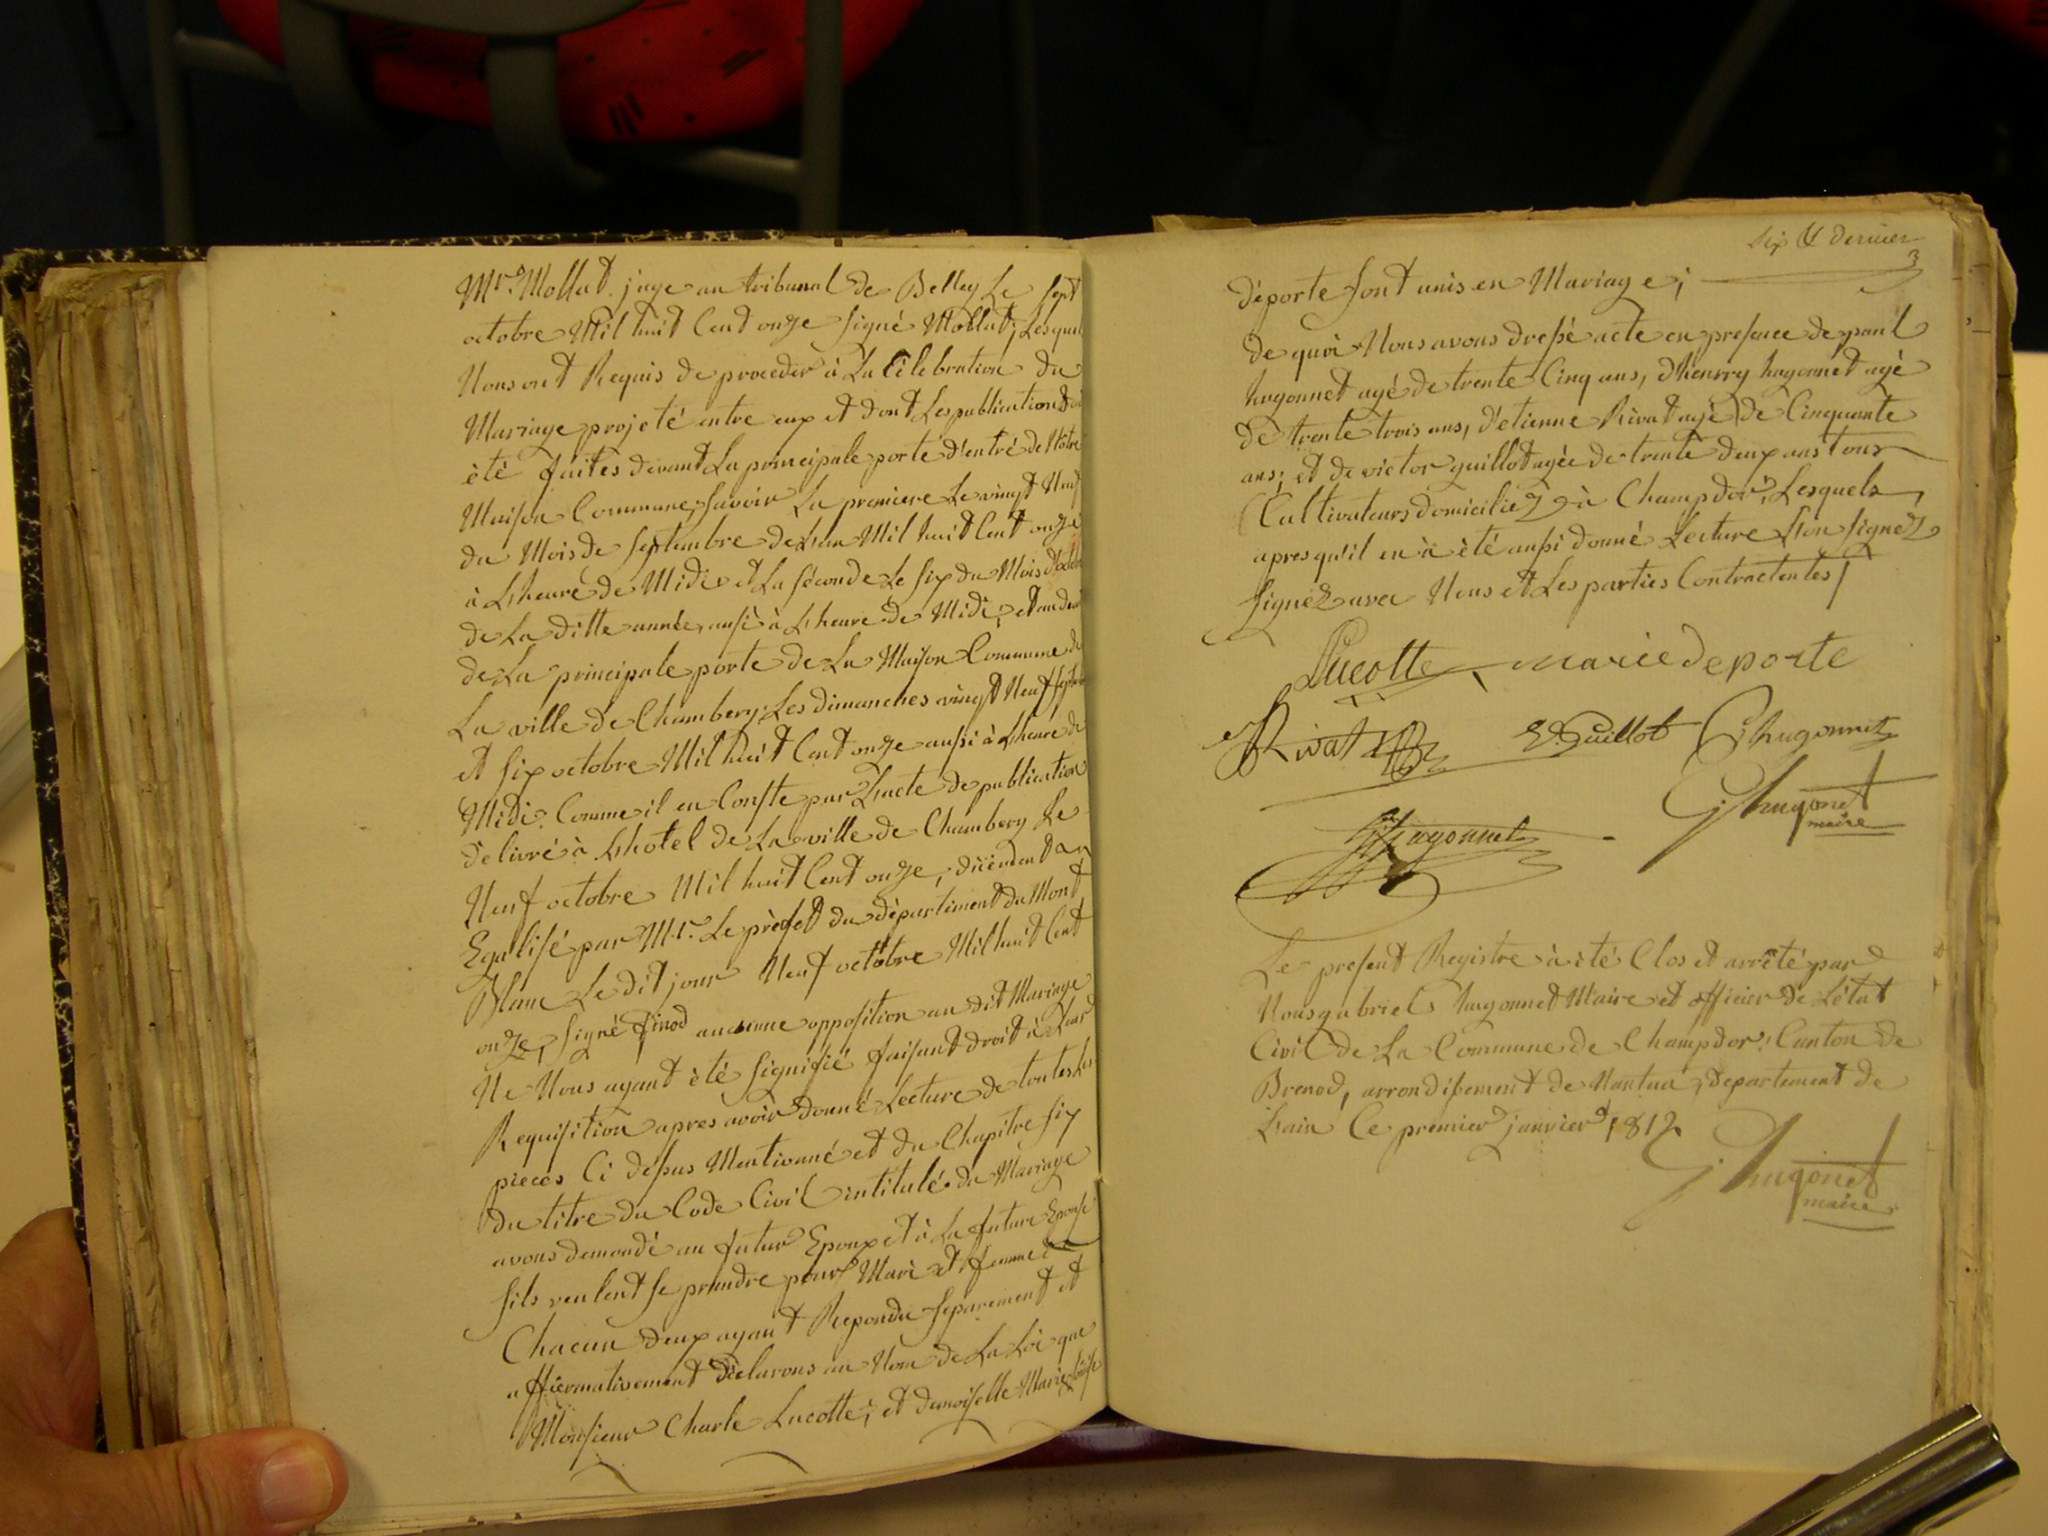 Mr. Mollat juge au tribunal de Belley Le sept
octobre Mil huit Cent onze signé Mollat; Lesquels
Nous ont Requis de proceder à La Célébration du
Mariage projeté entre eux et dont Les publications ont
été faites devant La principale porte d'entré de Nôtre
Maison Commune, savoir La premiere Le vingt Neuf
du Mois de septembre de L'an Mil huit Cent onze
à L'heure de Midi, et La séconde Le six du Mois d'octobre
de La ditte année, aussi à L'heure de Midi, et au devant
de La principale porte de La Maison Commune de
La ville de Chambery, Les dimanches vingt Neuf septembre
et six octobre Mil huit Cent onze aussi à L'heure de
Midi. Comme il en Conste par L'acte de publication
délivré à L'hotel de La ville de Chambery Le
Neuf octobre Mil huit Cent onze, duëment
Egalisé par Mr. Le préfet du département du Mont
Blanc Le dit jour Neuf octobre Mil huit Cent
onze, signé finod aucunne opposition au dit Mariage
Ne Nous ayant été signifié faisant droit à Leur
Requisition apres avoir donné Lecture de toutes Les
pieces Ci dessus Mentionné et du Chapitre six
du titre du Code Civil intitulé du Mariage
avons demandé au futur Epoux et à La future Epouse
s'ils veulent se prendre pour Mari et femme
Chacun d'eux ayant Repondu séparement et
affirmativement déclarons au Nom de La Loi que
Monsieur Charle Lucotte, et demoiselle Marie
six & dernier
3
déporte sont unis en Mariage;
de quoi Nous avons dressé acte en presence de paul
hugonnet agé de trente Cinq ans, d'henrry hugonnet agé
de trente trois ans, d'etienne Rivat agé de Cinquante
ans; et de victor guillot agée de trente deux ans tous
Cultivateurs domiciliéz à Champdor, Lesquels
apres qu'il en à été aussi donné Lecture L'on signéz
signéz avec Nous et Les parties Contractentes/
Lucotte marie deporte
Rivat V. Guillot hugonnet
hugonnet G. hugonet
maire
Le present Registre à été Clos et arrêté par
Nous gabriel hugonnet Maire et officier de L'état
Civil de La Commune de Champdor, Canton de
Brenod, arrondissement de Nantua, departement de
L'ain Ce premier janvier 1812
G. hugonet
maire